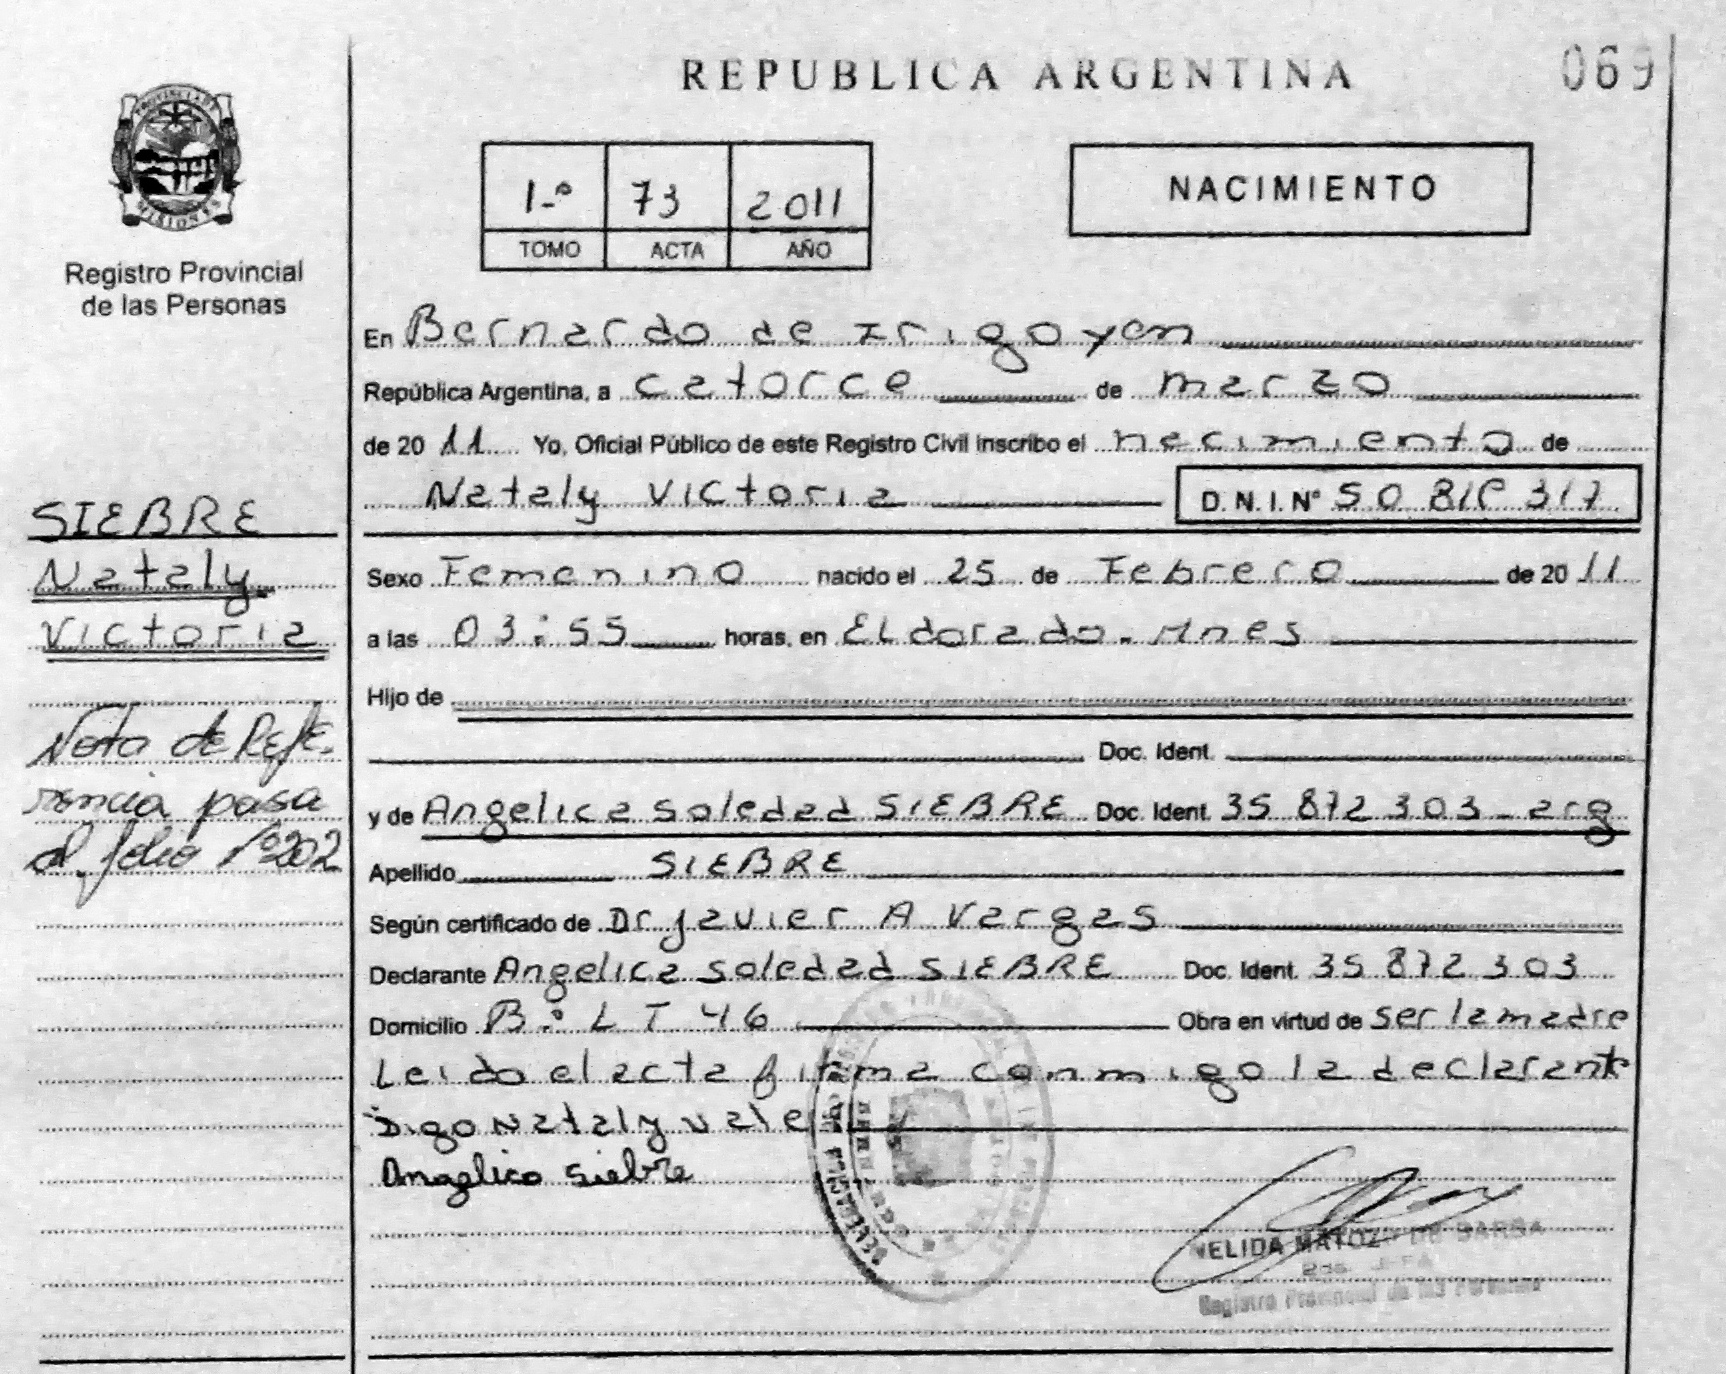 REPUBLICA ARGENTINA
069
PROVINCIA DE
MISIONES
Registro Provincial
de las Personas
1-º 73 2011
TOMO ACTA AÑO
NACIMIENTO
En Bernardo de Irigoyen
República Argentina, a catorce de marzo
de 20 11 Yo, Oficial Público de este Registro Civil inscribo el nacimiento de
Nataly Victoria D.N.I. Nº 50 817
SIEBRE
Nataly
Victoria
Sexo Femenino nacido el 25 de Febrero de 20 11
a las 03:55 horas, en Eldorado - Mnes
Hijo de
Doc. Ident.
y de Angelica Soledad SIEBRE Doc. Ident. 35 872 303 - arg
Apellido SIEBRE
Según certificado de Dr Javier A Vargas
Declarante Angelica Soledad SIEBRE Doc. Ident. 35 872 303
Domicilio Bº L T 46 Obra en virtud de ser la madre
Leido el acta firma conmigo la declarante
Digo Nataly vale
Angelica Siebre
Nota de Refe.
rencia pasa
al folio Nº 202
NELIDA MATOZO DE BARBA
Registro Provincial de las Personas